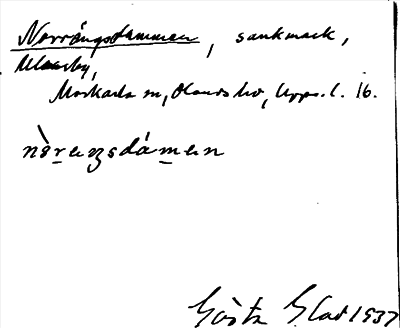 Norrängsdammen, sankmark,
Ulvarby,
Morkarla sn, Olands hd, Upps. l. 16.
nòrεŋsdámεn
Gösta Glad 1937